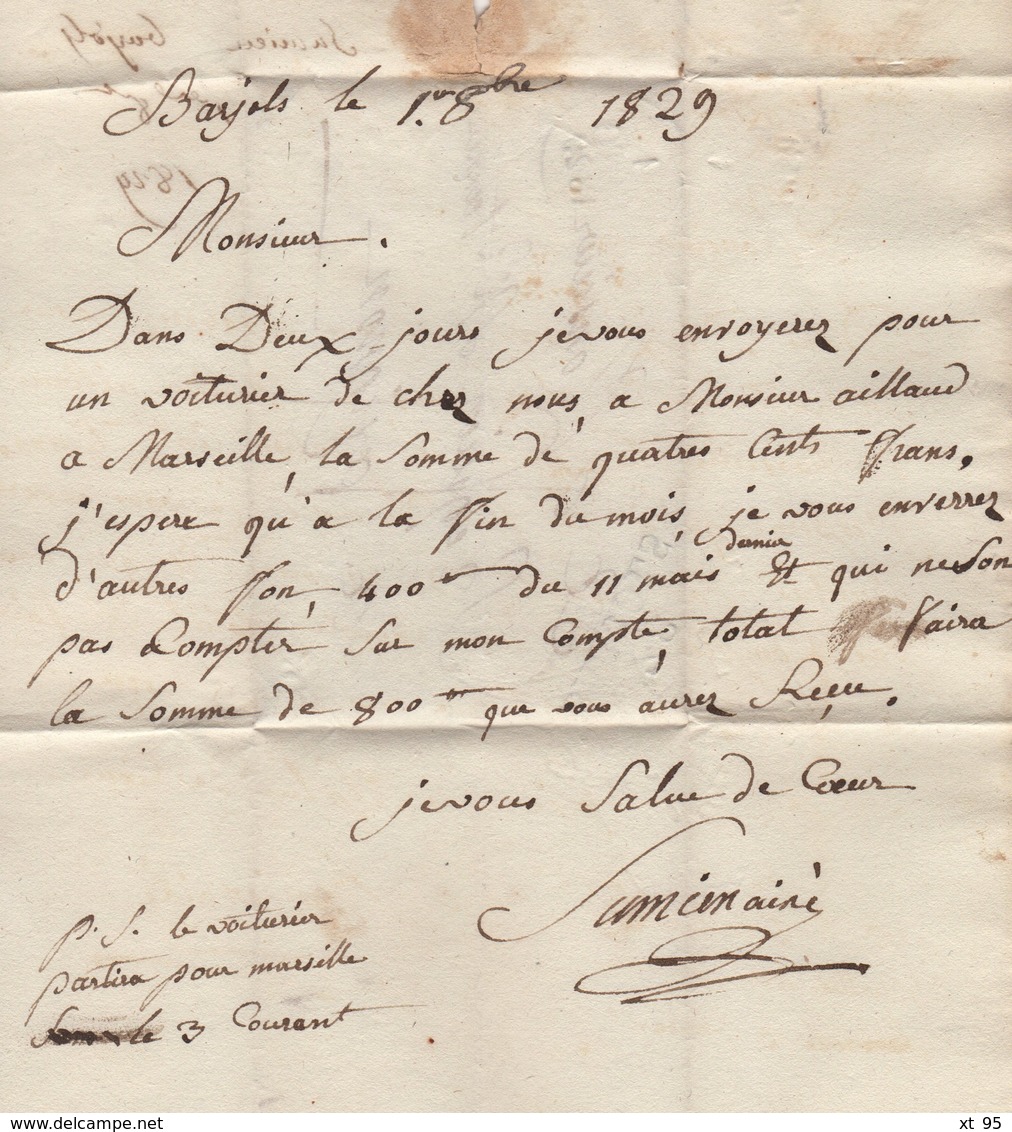 Barjols le 1.er 8bre 1829
Monsieur.
Dans Deux jours je vous envoyerez pour
un voiturier de chez nous, a Monsieur aillaud
a Marseille, la Somme de quatres Cents frans.
j'espere qu'a la fin du mois, je vous enverrez
d'autres fon, 400 du 11 mais dernier Et qui ne Son
pas Compter Sur mon Compte, total faira
la Somme de 800 que vous aurez Reçu.
je vous Salue de Cœur
Sumien ainé
p. S. le voiturier
partira pour marseille
le 3 Courant
www.delcampe.net
xt 95